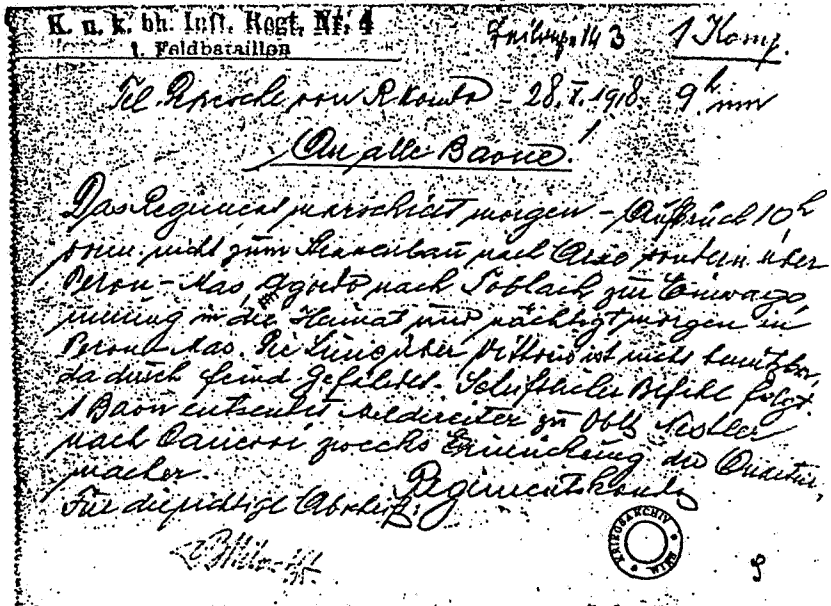 K. u. k. bh. Inft. Regt. Nr. 4
1. Feldbataillon
143 1 Komp.
Tel. Depesche von Rkomdo - 28.X.1918. 9h
An alle Baone!
Das Regiment marschiert morgen - Aufbruch 10h
vorm. nicht zum nach sondern über
Peron - Mas, Agordo nach Toblach zur Einwago,
nierung in die Heimat und nächtigt morgen in
Peron - Mas. Die Linie über Vittorio ist nicht benützbar,
da durch Feind gefährdet. Schriftlicher Befehl folgt.
1 Baon entsendet Meldereiter zu Oblt Nestler
nach zwecks Erreichung der Quartier,
macher.
Regimentskomdo
Für die richtige Abschrift:
KRIEGSARCHIV WIEN